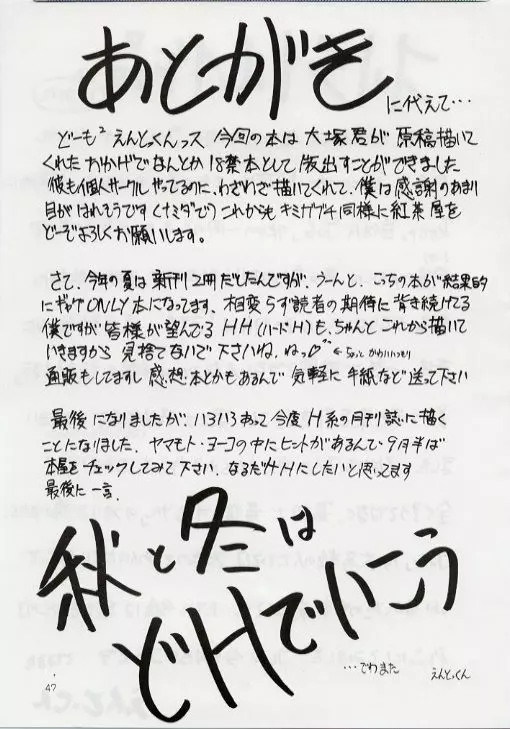 あとがき
に代えて…
どーも² えんとっくんっス 今回の本は大塚君が原稿描いて
くれたおかげでなんとか 楽本として版出すことができました
彼も個人サークルやってるのに、わざわざ描いてくれて、僕は感謝のあまり
目がはれそうです(ナミダで) これからも キミガブチ同様に紅茶屋を
どーぞよろしくお願いします。
さて、今年の夏は新刊2冊だしたんですが、うーんと、こちの本が結果的
にギャグONLY本になってます、相変らず読者の期待に背き続けてる
僕ですが皆様が望んでるHH(ハードH)も、ちゃんとこれから描いて
いきますから 見捨てないで下さいね、ねっ♡ ←ちょっとかわいいっっ
通販もしてますし感想本とかもあるんで 気軽に手紙など送って下さい
最後になりましたが、いろいろあって今度H系の月刊誌に描く
ことになりました、ヤマモト・ヨーコの中にヒントがあるんで・9月半ば
本屋をチェックしてみて下さい、なるだけHにしたいと思ってます
最後に一言、
秋と冬は
どHでいこう
…でわまた
えんとっくん
47